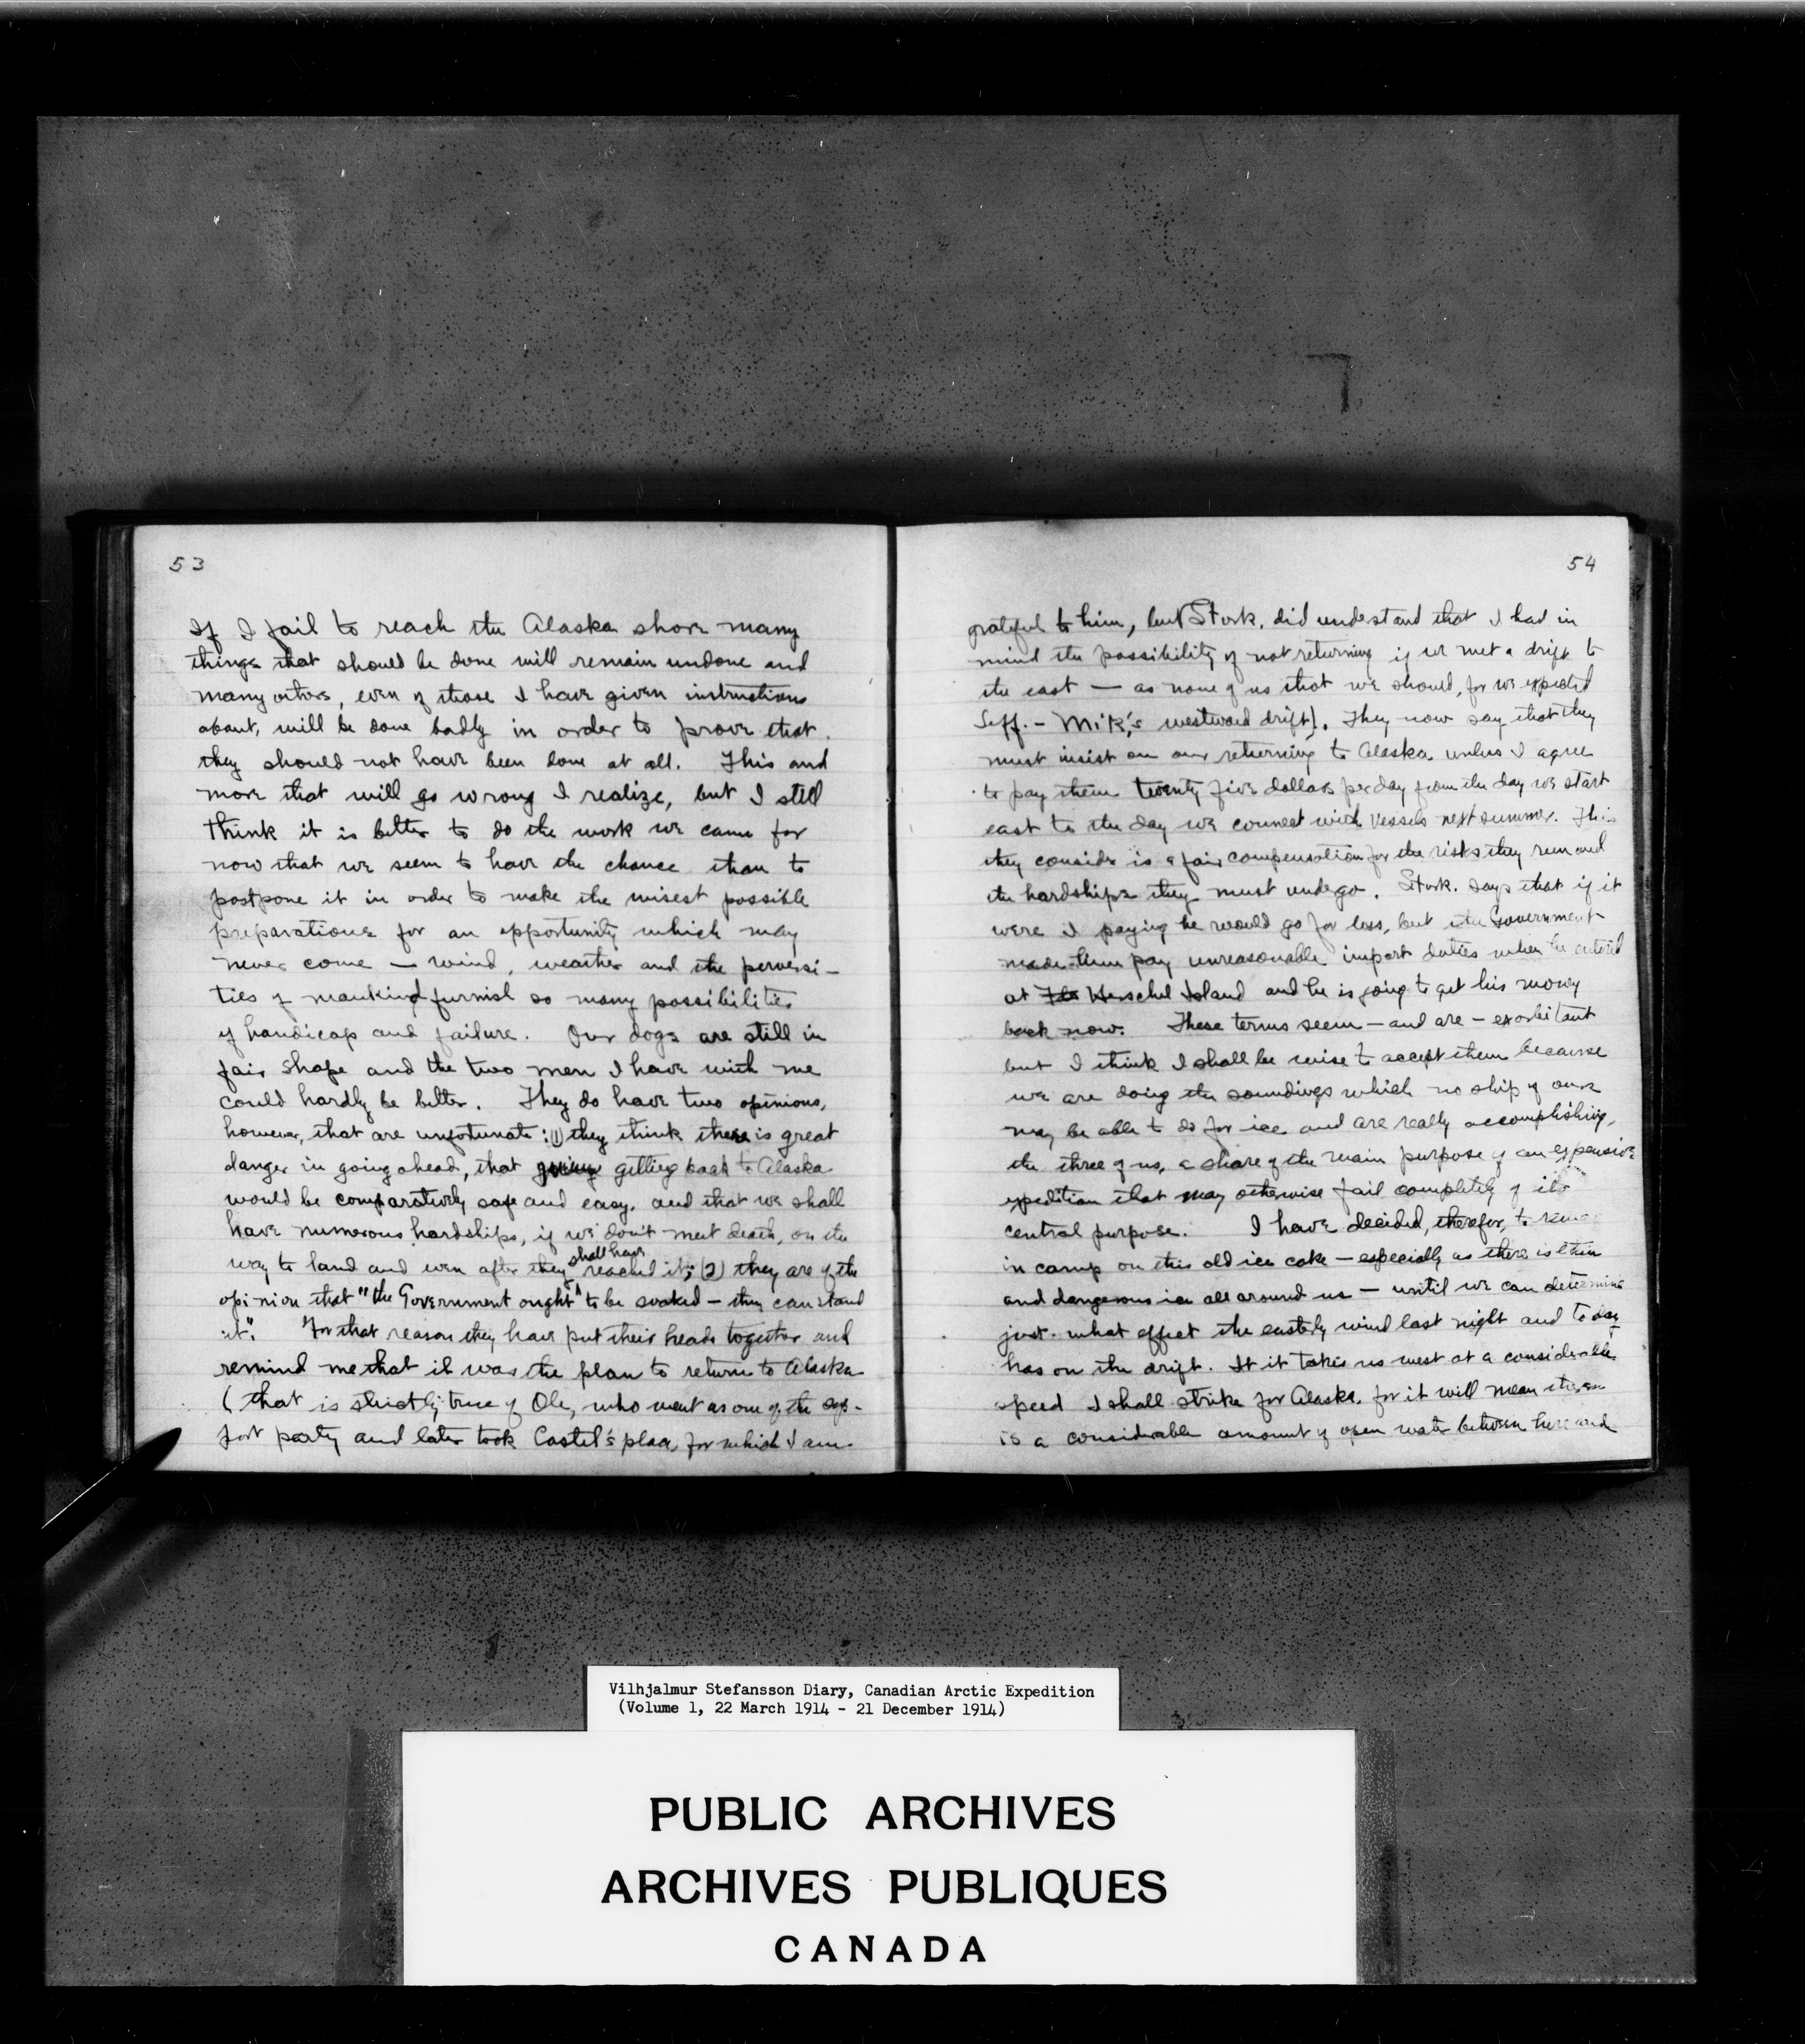 53
If I fail to reach the Alaska shore many
things that should be done will remain undone and
many others, even of those I have given instructions
about, will be done badly in order to prove that
they should not have been done at all. This and
more that will go wrong I realize, but I still
think it is better to do the work we came for
now that we seem to have the chance than to
postpone it in order to make the wisest possible
preparations for an opportunity which may
never come — wind, weather and the perversi-
ties of mankind furnish so many possibilities
of handicap and failure. Our dogs are still in
fair shape and the two men I have with me
could hardly be better. They do have two opinions,
however, that are unfortunate: (1) they think there is great
danger in going ahead, that going getting back to Alaska
would be comparatively safe and easy, and that we shall
have numerous hardships, if we don't meet death, on the
way to land and even after they shall have reached it; (2) they are of the
opinion that "the Government ought" to be soaked — they can stand
it". For that reason they have put their heads together and
remind me that it was the plan to return to Alaska
(that is strictly true of Ole, who went as one of the sup-
port party and later took Castel's place, for which I am
54
grateful to him, but Stork. did understand that I had in
mind the possibility of not returning if we met a drift to
the east — as none of us that we should, for we expected
Leff.-Mik's westward drift). They now say that they
must insist on our returning to Alaska unless I agree
to pay them twenty five dollars per day from the day we start
east to the day we connect with vessels next summer. This
they consider is a fair compensation for the risks they run and
the hardships they must undergo. Stork. says that if it
were I paying he would go for less, but the Government
made them pay unreasonable import duties when he entered
at Herschel Island and he is going to get his money
back now. These terms seem — and are — exorbitant
but I think I shall be wise to accept them because
we are doing the soundings which no ship of ours
may be able to do for ice and are really accomplishing,
the three of us, a share of the main purpose of an expensive
expedition that may otherwise fail completely of its
central purpose. I have decided, therefor, to
in camp on this old ice cake — especially as there is thin
and dangerous ice all around us — until we can determine
just what effect the easterly wind last night and today
has on the drift. If it takes us west at a considerable
speed I shall strike for Alaska, for it will mean there
is a considerable amount of open water between here and
Vilhjalmur Stefansson Diary, Canadian Arctic Expedition
(Volume 1, 22 March 1914 - 21 December 1914)
PUBLIC ARCHIVES
ARCHIVES PUBLIQUES
CANADA